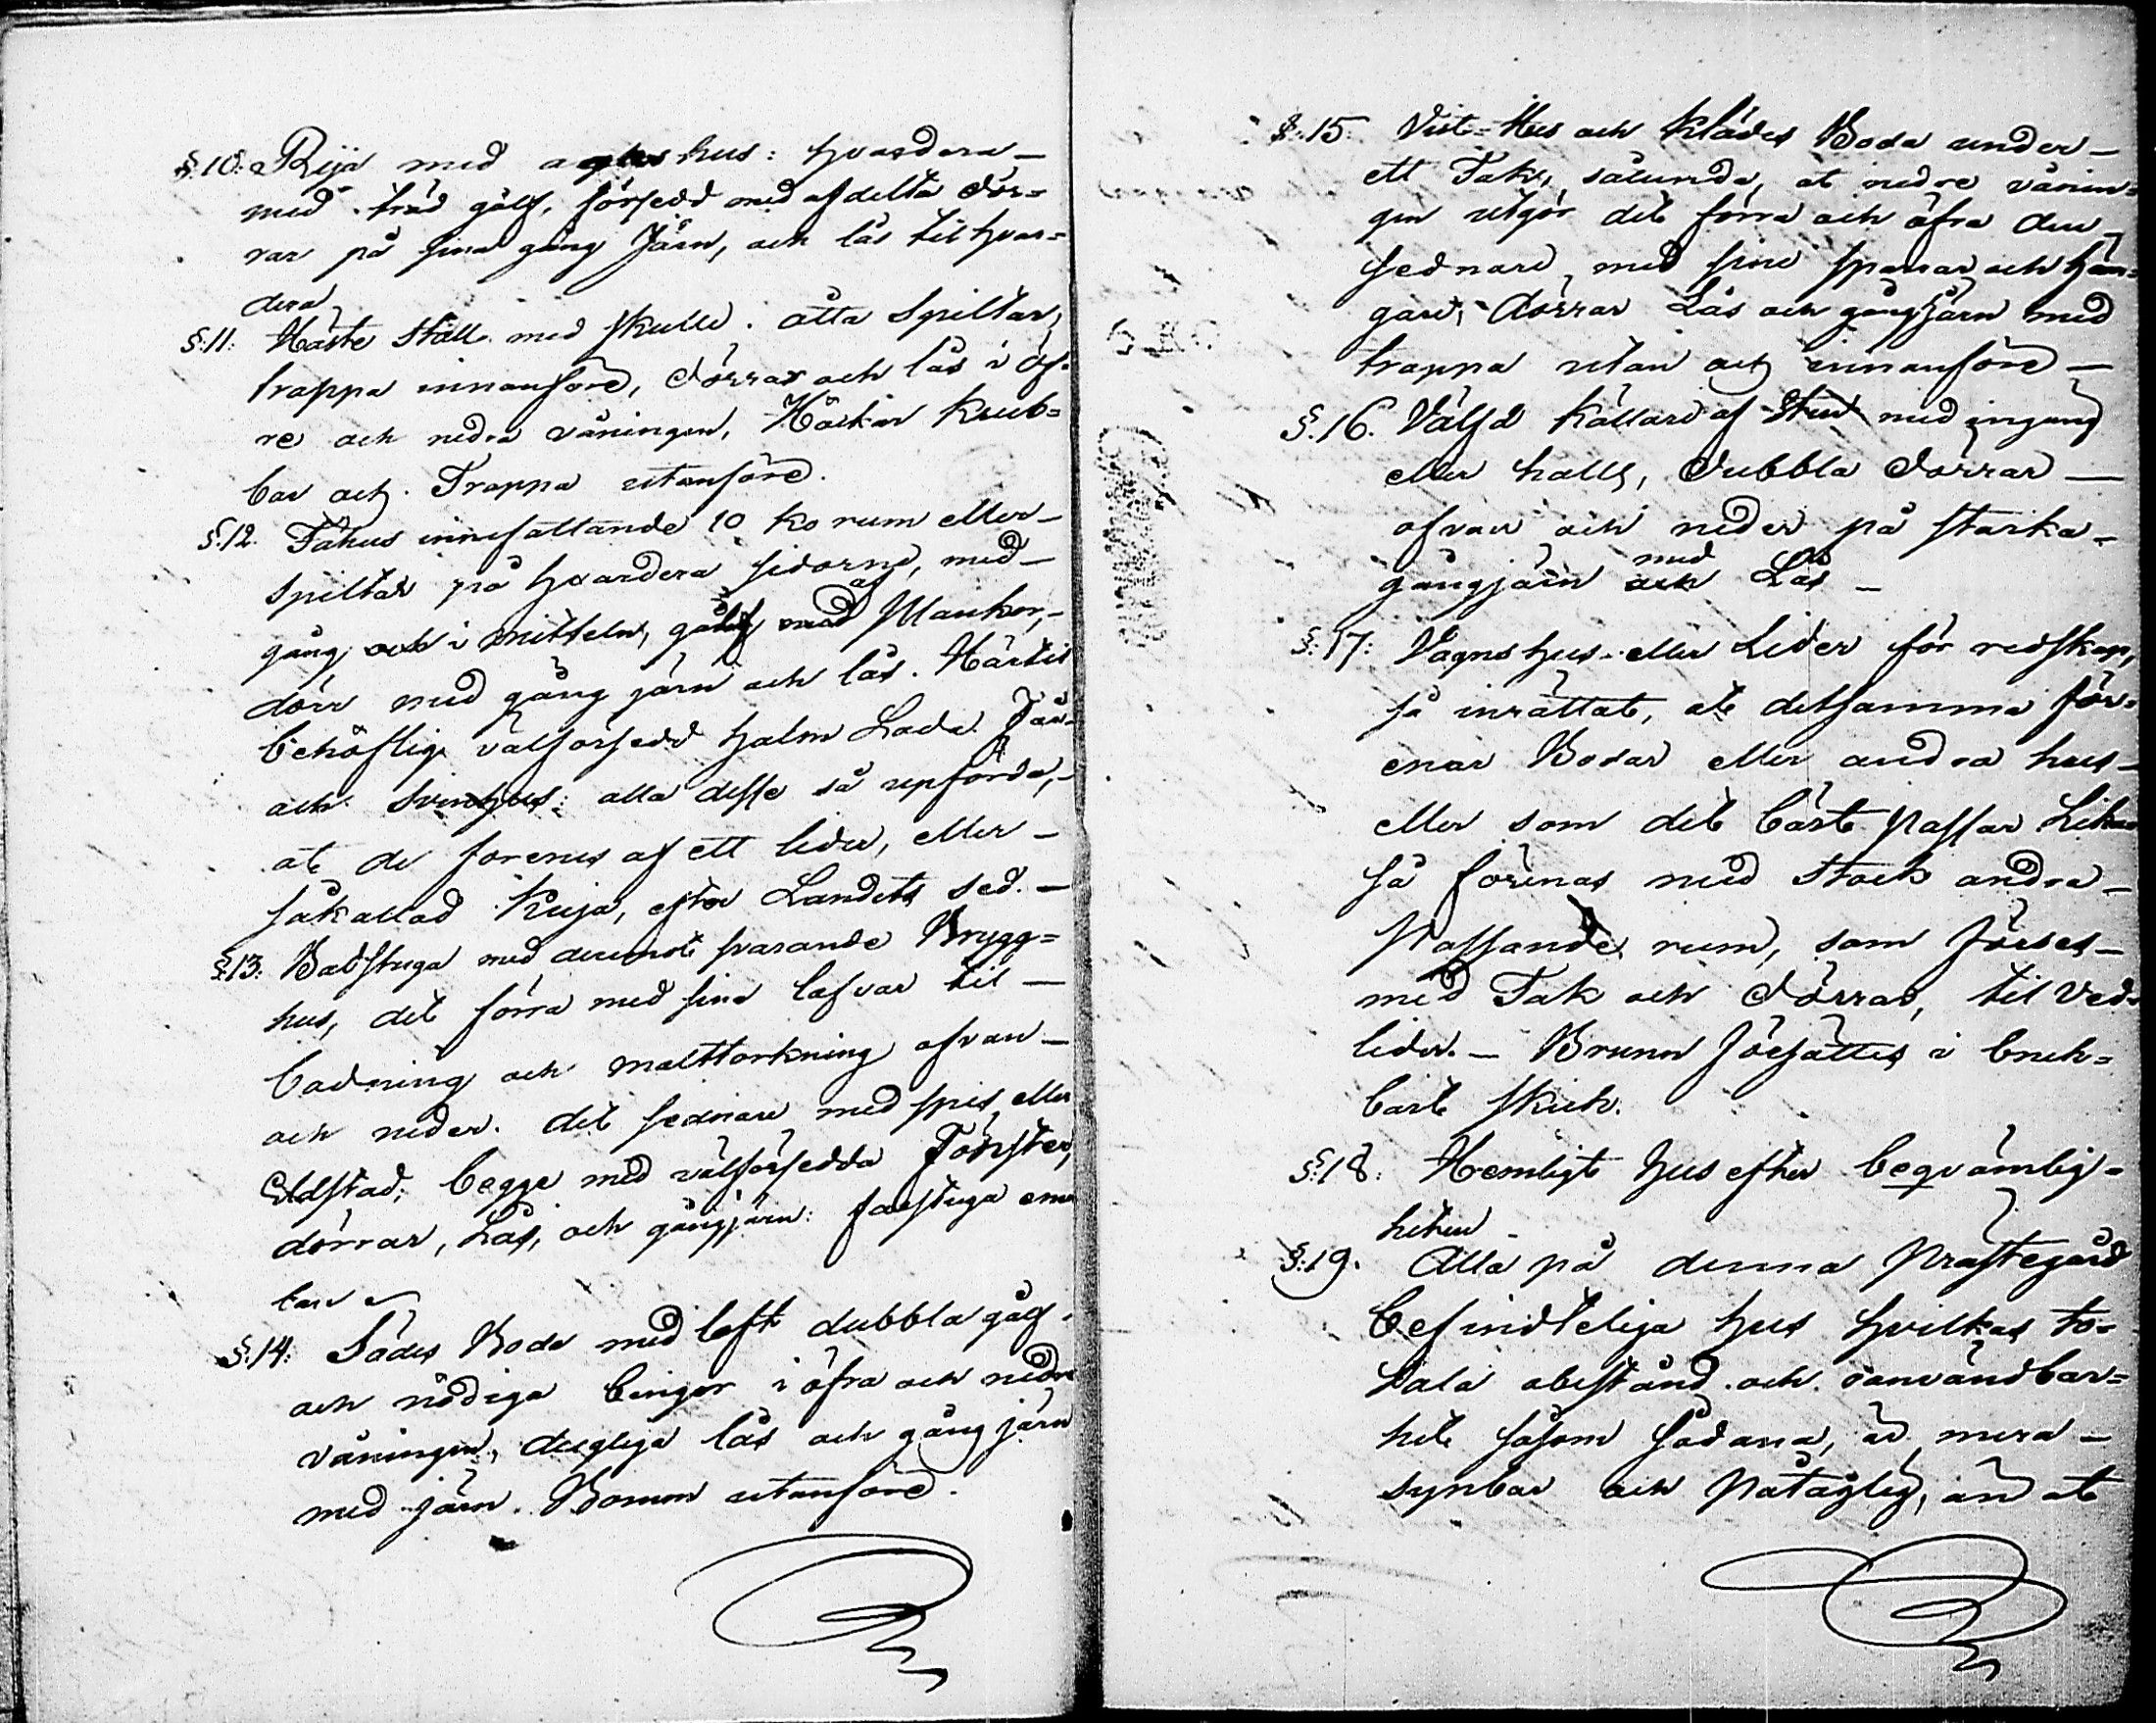 §:10: Rija med agnhus: hvardera –
med träd gålf, försedd med afdelta dör=
rar på sina gång Järn, och lås til hvar=
dera
§:11: Häste Stall med Skulle. åtta Spiltar,
trappa innanföre, dörrar och lås i öf-
re och nedra våningen, Häckar Krub=
bar och Trappa utanföre.
§:12. Fähus innefattande 10 ko rum eller –
Spiltar på hvardera sidorne, med –
gång och i mitteln, gålf af Plankor, –
dörr med gång järn och lås. Härtil
behöflig välförsedd halm Lada. Får-
och Svinhus: alla desse så upförda, –
at de förenes af ett lider, eller –
såkallad Kuja, efter Landets sed. –
§:13: Badstuga med deremot svarande Brygg=
hus, det förra med sina lafvar til –
badning och malttorkning ofvan –
och neder. det sednare med spis eller
Eldstad; begge med välförsedda Fönster,
dörrar, Lås, och gångjärn: farstuga emel
lan
§:14: Sädes Boda med loft dubbla gålf.
och nödiga bingar i öfra och nedre
våningen, dugliga lås och gång järn
med järn Bommar utanföre.
§:15: Vist=Hus och Klädes Boda under –
ett Tak, sålunda, at nedre vånin=
gen utgör det förra och öfra den –
sednare, med sine spanar och hän=
gare, dörrar Lås och gångjärn med
trappa utan och innanföre –
§.16. Välfd Källare af Sten med ingång
eller hals, dubbla dörrar –
ofvan och neder på starka –
gångjärn med Lås –
§:17: Vagnshus eller Lider för redskap,
så inrättat, at detsamma för=
enar Bodar eller andra hus –
eller som det bäst passar Lika
så förenas med Stock andra –
passande rum, som förses –
med Tak och dörrar, til Ved=
lider. – Brunn försättes i bruk=
bart skick.
§:18: Hemligt hus efter beqvämlig=
heten –
§:19. Alla på denna Prästegård
befindteliga hus hvilkas to=
tala obestånd och oanvändbar=
het såsom sådana, är mera –
synbar och påtaglig, än at